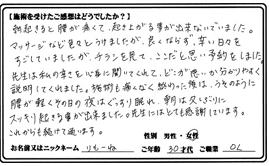 【施術を受けたご感想はどうでしたか?】
朝起きると腰が痛くて、起き上がる事が出来ないでいました。
マッサージなど色々とうけましたが、良くならず、辛い日々を
すごしていましたが、チラシを見て、ここだと思い予約をしました。
先生は私の辛さをいい事に聞いてくれて、どこが悪いか分かりやすく
説明してくれました。施術も痛みなく終わった後は、うそのように
腰が軽くその日の夜はぐっすり眠れ、朝は久しぶりに
スッキリ起きる事が出来ました。先生にはとても感謝しています。
これからも続けて通います。
性別 男性・女性
お名前又はニックネーム りもーね ご年齢 30才代 ご職業 OL